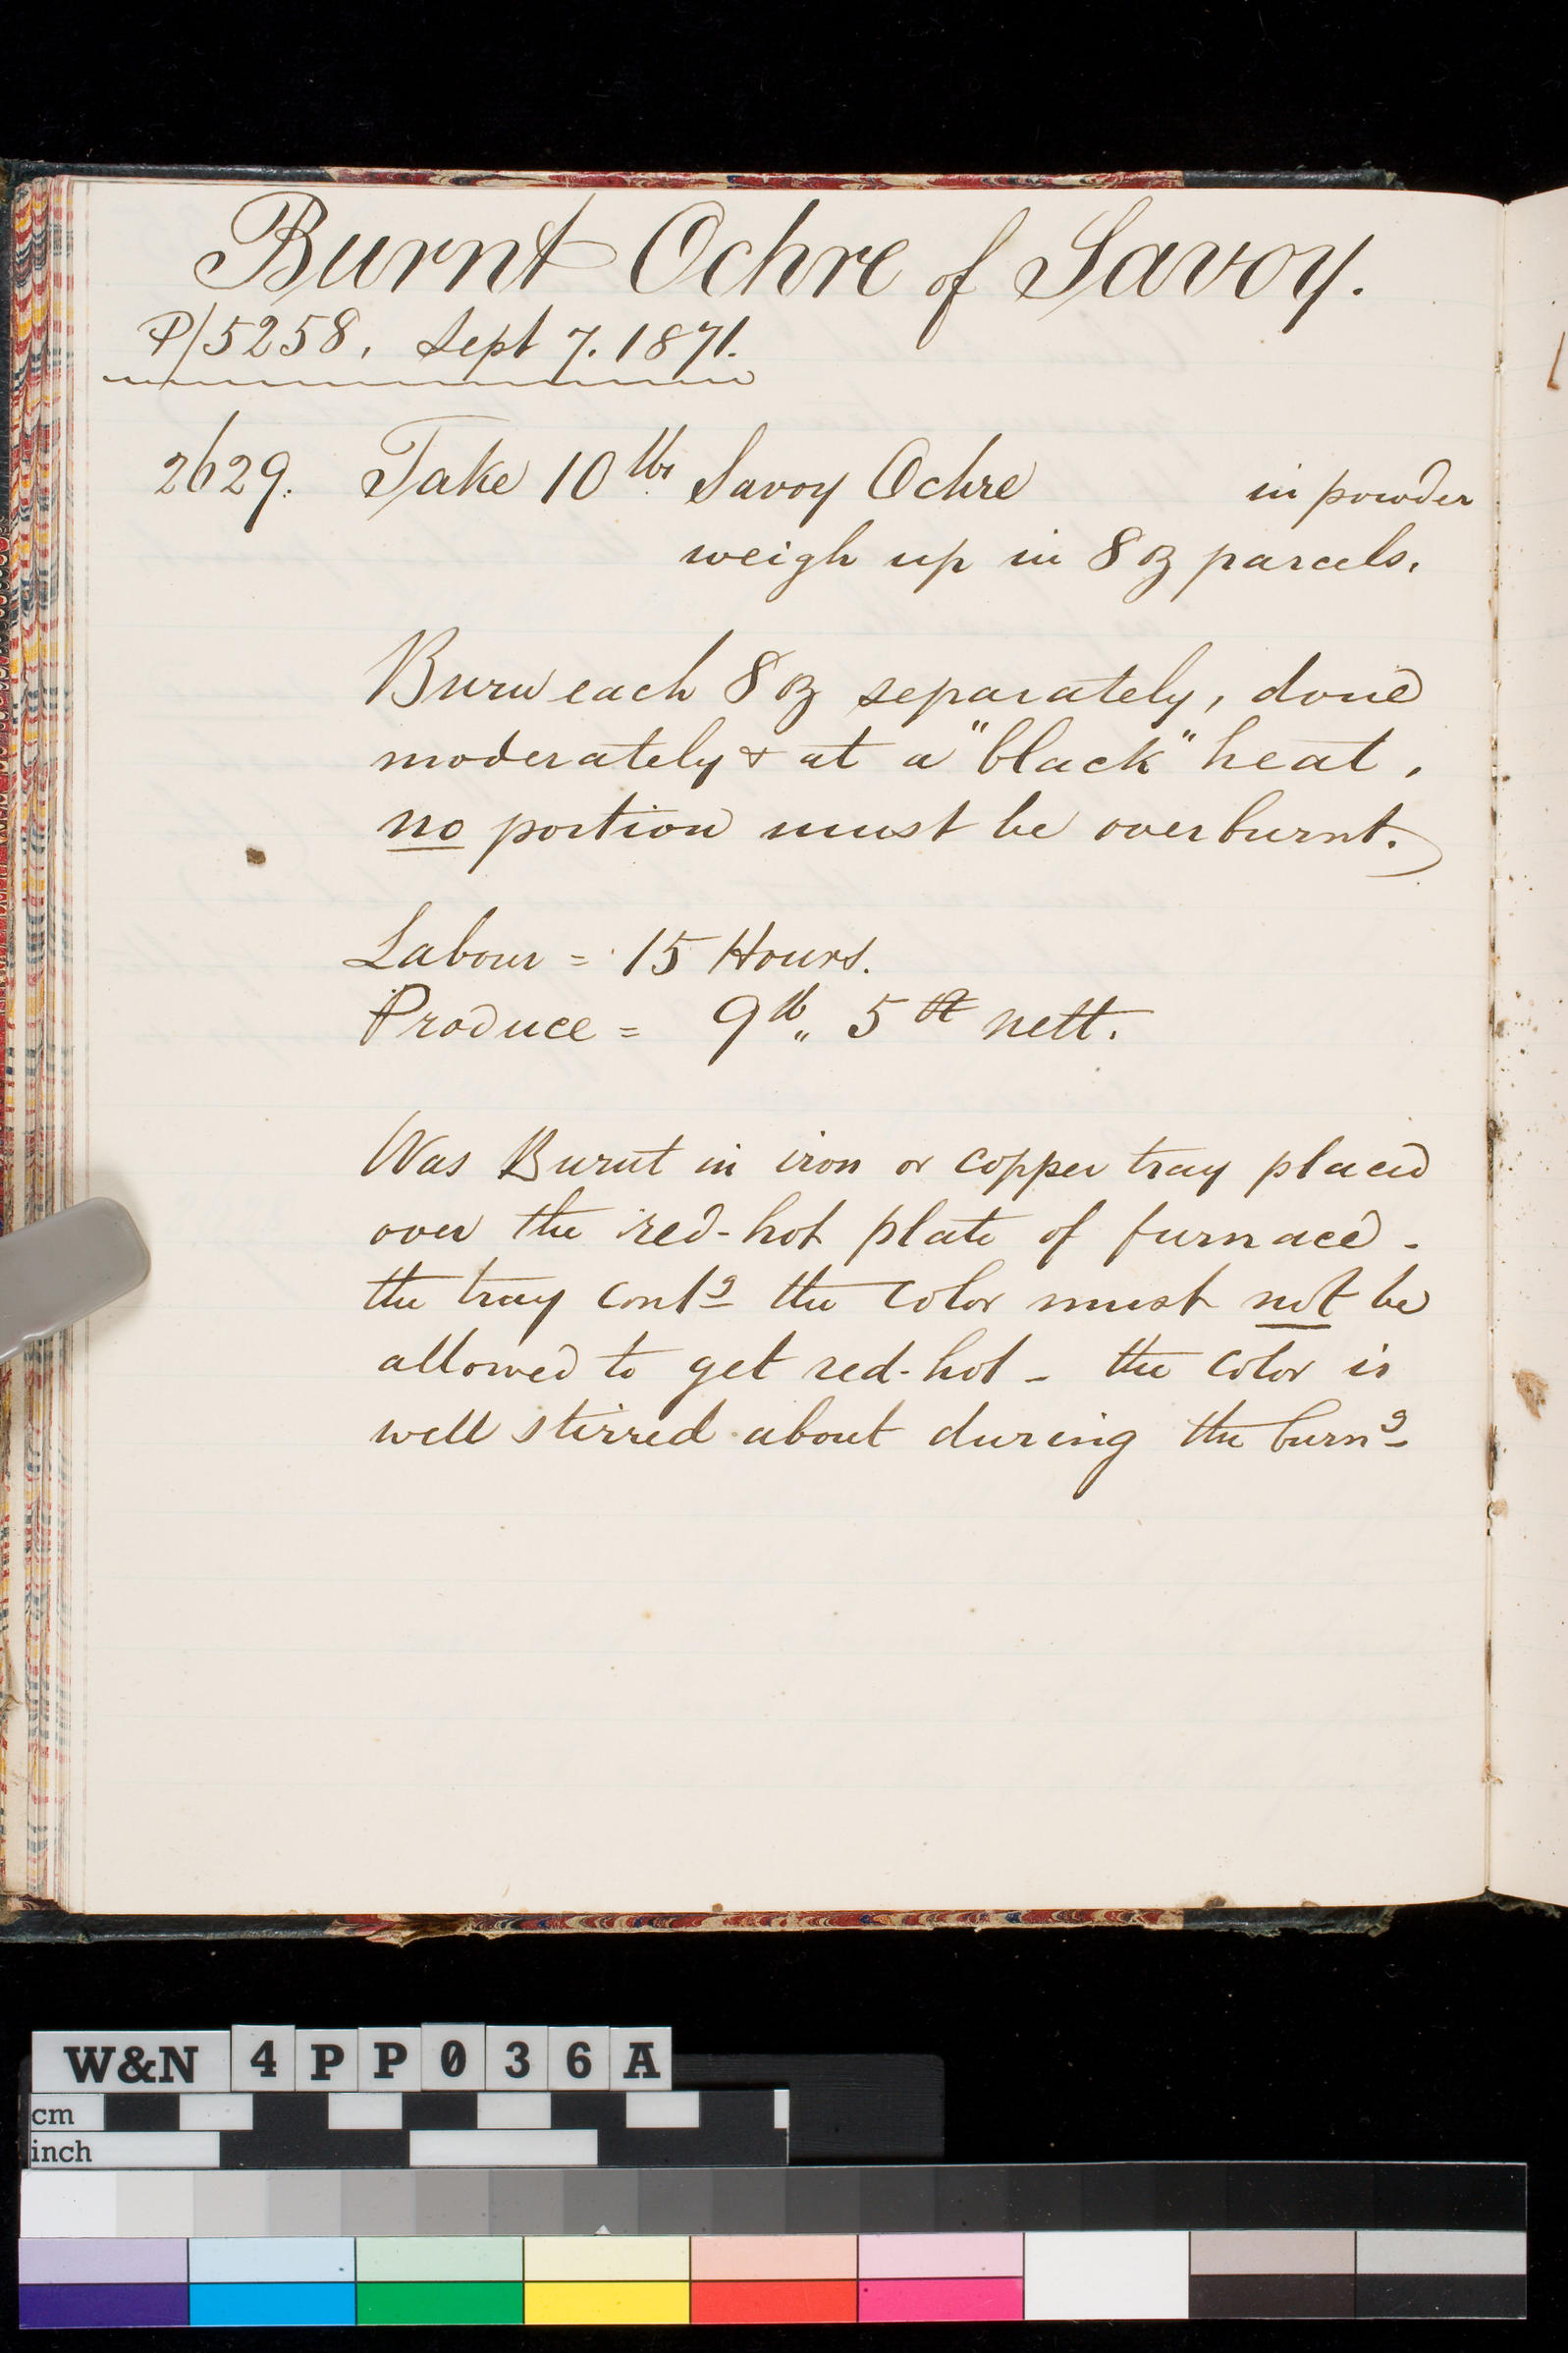 Burnt Ochre of Savoy.
P/5258, Sept 7. 1871.
2629. Take 10 lbs Savoy Ochre in powder
weigh up in 8 oz parcels.
Burn each 8 oz separately, done
moderately & at a "black" heat,
no portion must be overburnt.
Labour = 15 Hours.
Produce = 9 lb „ 5 nett.
Was Burnt in iron or copper tray placed
over the red-hot plate of furnace -
the tray contg the color must not be
allowed to get red-hot - the color is
well stirred about during the burng
W&N 4PP036A
cm
inch